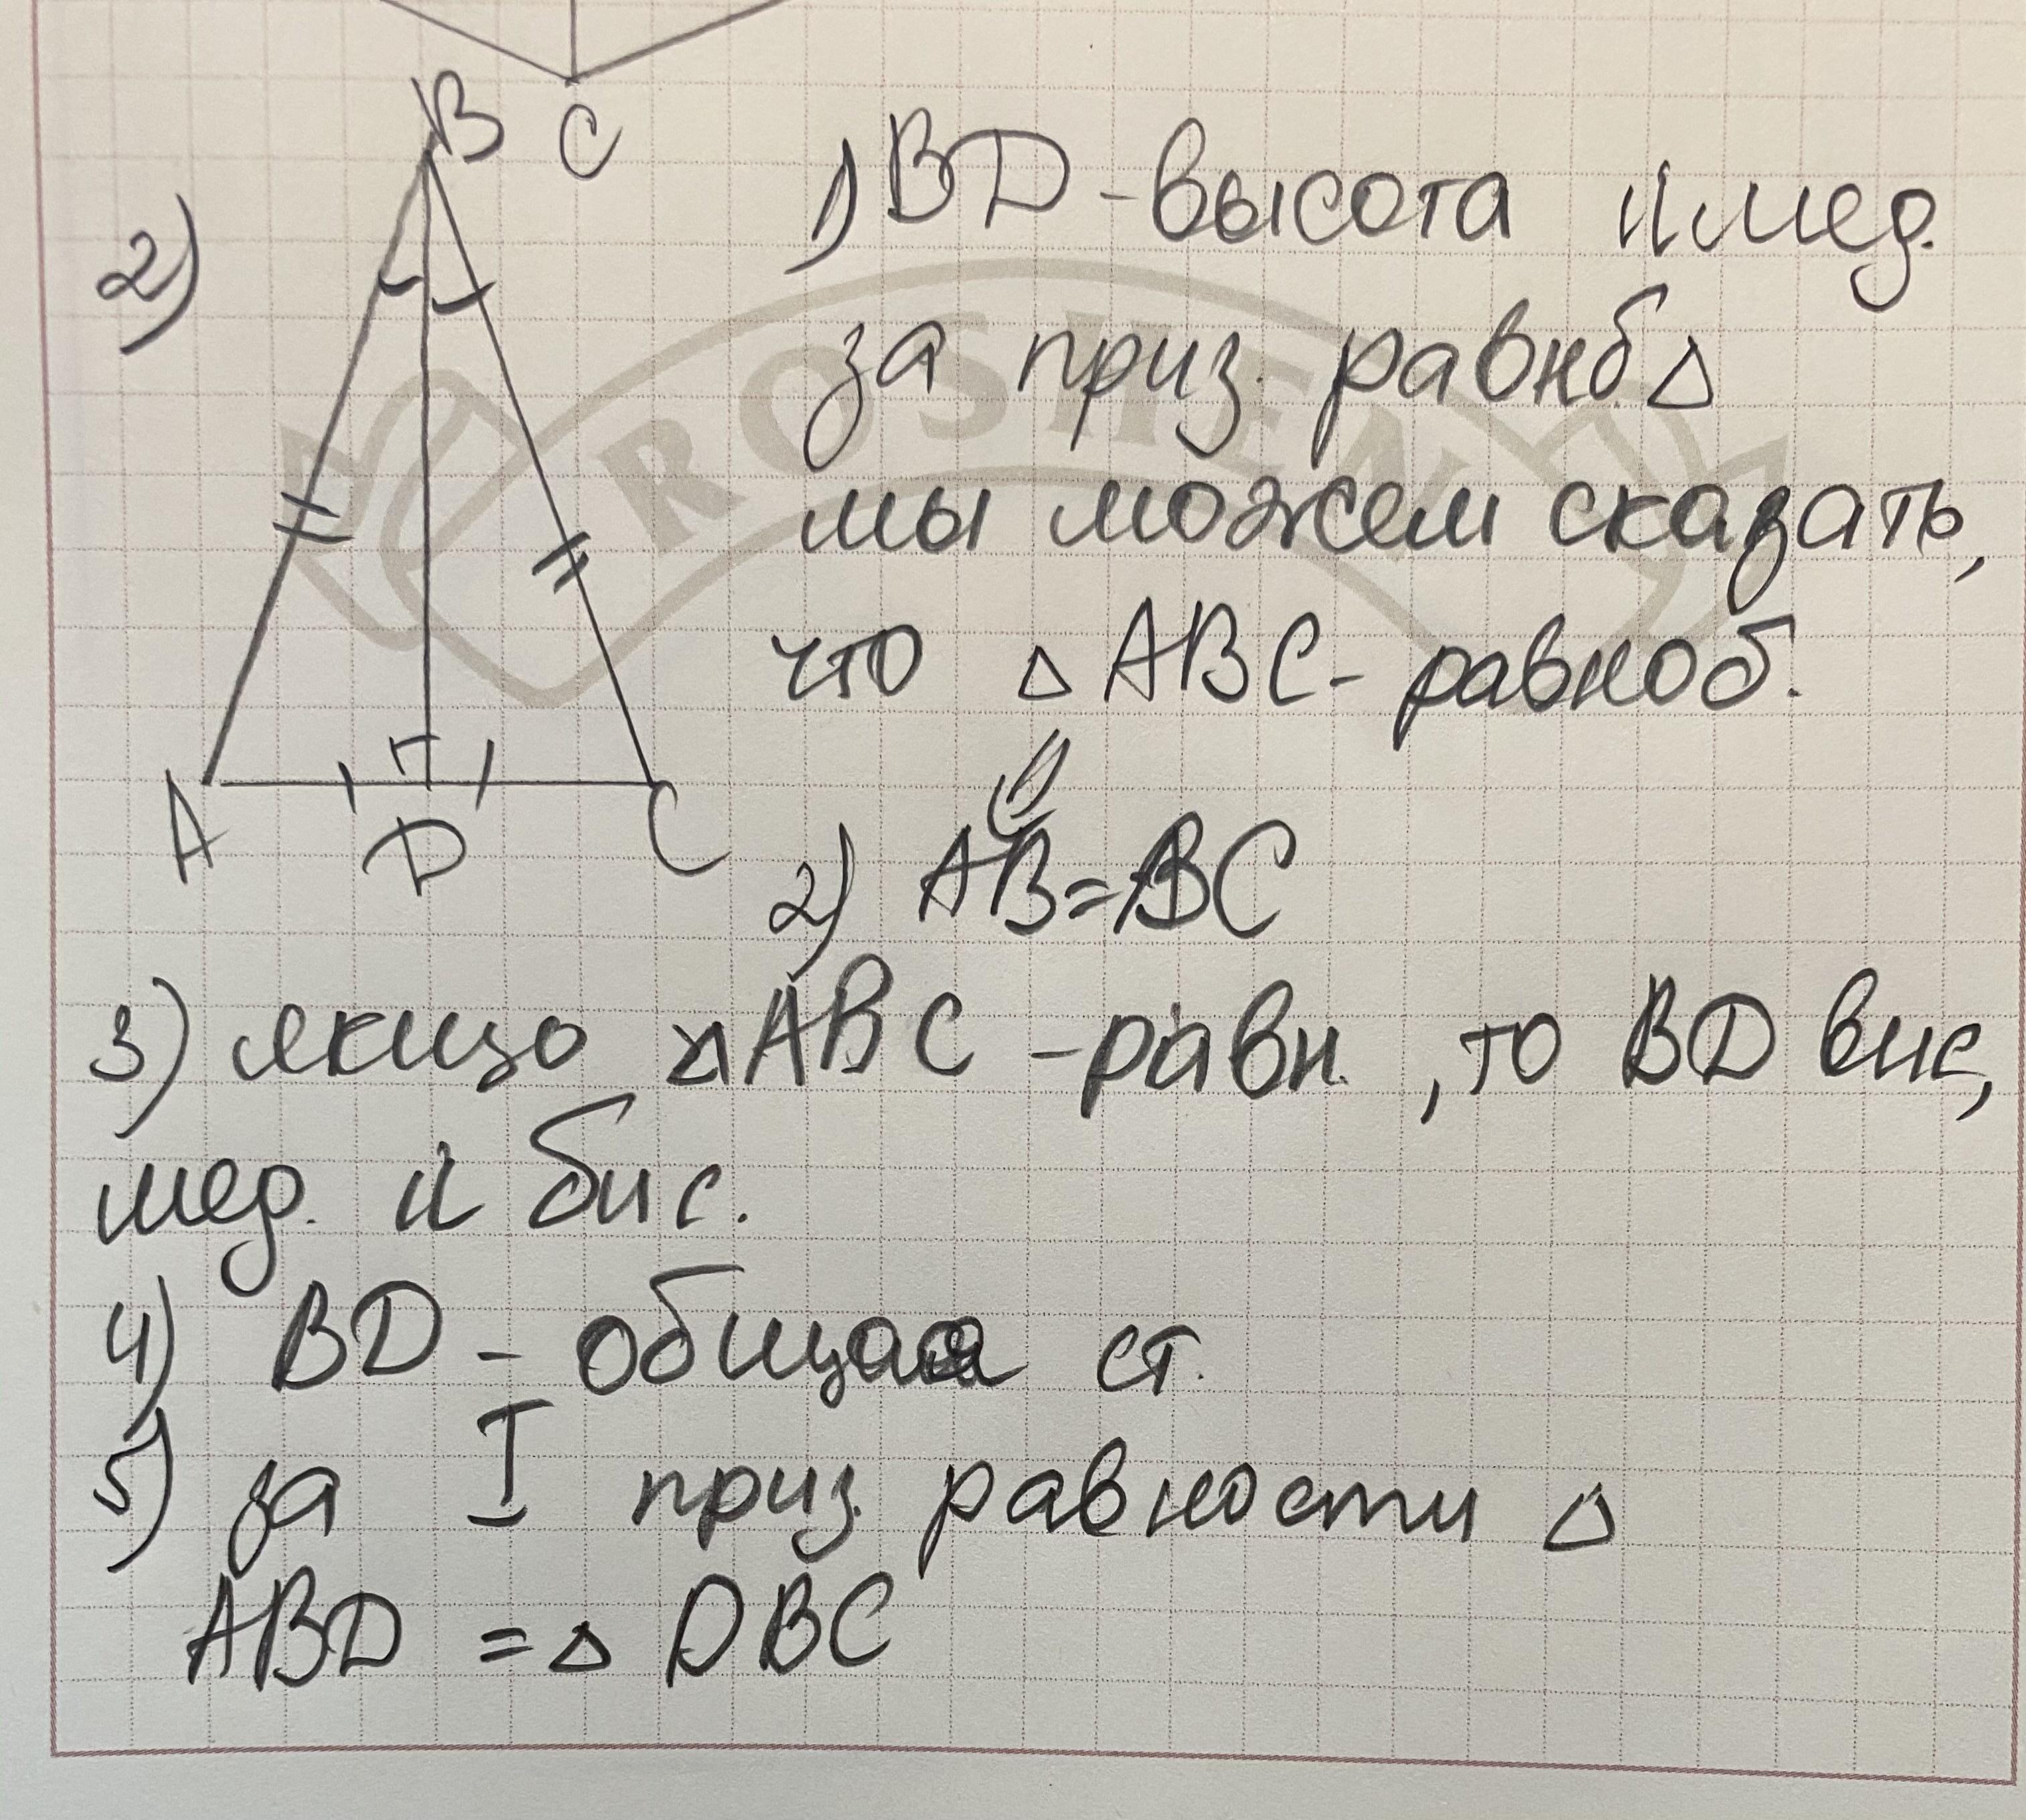 C
2)
B
A
D
C
1) BD - высота и мед.
за приз. равнб △
мы можем сказать,
что △ ABC - равноб.
2) AB = BC
3) якщо △ ABC - равн., то BD вис,
мед. и бис.
4) BD - общая ст.
5) за I приз. равности △
ABD = △ DBC
ROSHEN